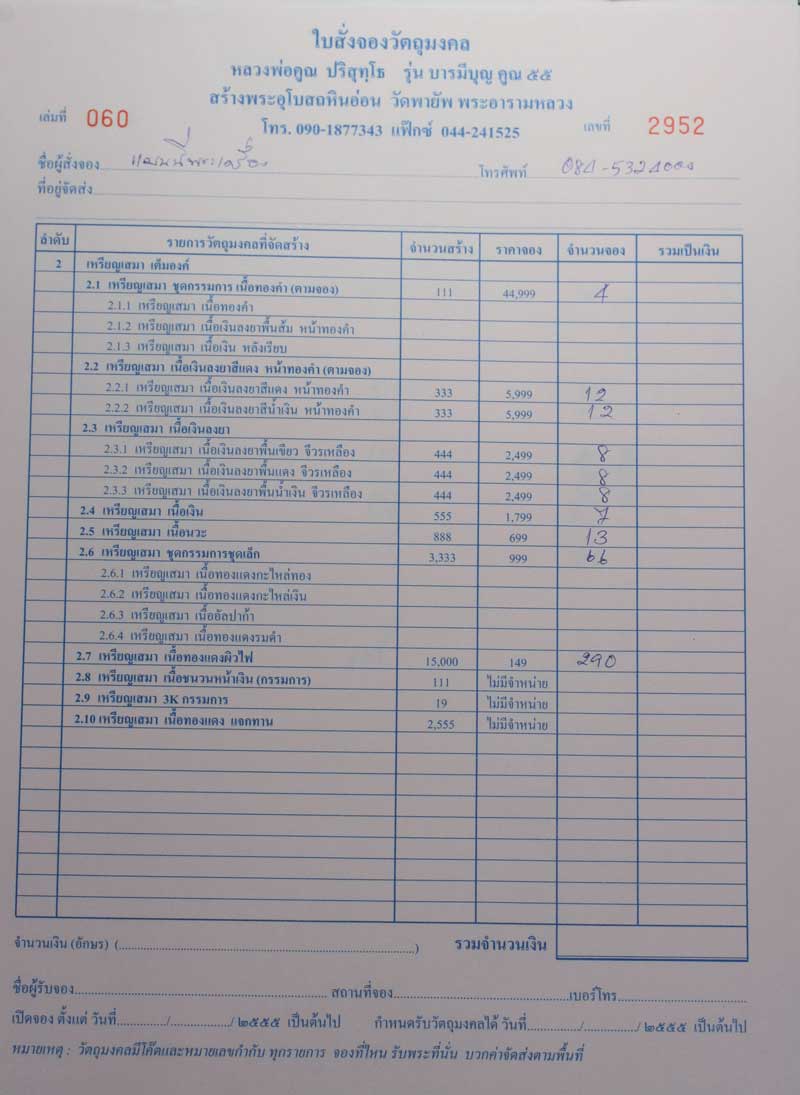 ใบสั่งจองวัตถุมงคล
หลวงพ่อคูณ ปริสุทฺโธ รุ่น บารมีบุญ คูณ ๕๕
สร้างพระอุโบสถหินอ่อน วัดพายัพ พระอารามหลวง
เล่มที่ 060 โทร. 090-1877343 แฟ๊กซ์ 044-241525 เลขที่ 2952
ชื่อผู้สั่งจอง แมนนี่พระเครื่อง โทรศัพท์
ที่อยู่จัดส่ง
ลำดับ รายการวัตถุมงคลที่จัดสร้าง จำนวนสร้าง ราคาจอง จำนวนจอง รวมเป็นเงิน
2 เหรียญเสมา เต็มองค์
2.1 เหรียญเสมา ชุดกรรมการ เนื้อทองคำ (ตามจอง) 111 44,999 4
2.1.1 เหรียญเสมา เนื้อทองคำ
2.1.2 เหรียญเสมา เนื้อเงินลงยาพื้นส้ม หน้าทองคำ
2.1.3 เหรียญเสมา เนื้อเงิน หลังเรียบ
2.2 เหรียญเสมา เนื้อเงินลงยาสีแดง หน้าทองคำ (ตามจอง)
2.2.1 เหรียญเสมา เนื้อเงินลงยาสีแดง หน้าทองคำ 333 5,999 12
2.2.2 เหรียญเสมา เนื้อเงินลงยาสีน้ำเงิน หน้าทองคำ 333 5,999 12
2.3 เหรียญเสมา เนื้อเงินลงยา
2.3.1 เหรียญเสมา เนื้อเงินลงยาพื้นเขียว จีวรเหลือง 444 2,499 8
2.3.2 เหรียญเสมา เนื้อเงินลงยาพื้นแดง จีวรเหลือง 444 2,499 8
2.3.3 เหรียญเสมา เนื้อเงินลงยาพื้นน้ำเงิน จีวรเหลือง 444 2,499 8
2.4 เหรียญเสมา เนื้อเงิน 555 1,799 7
2.5 เหรียญเสมา เนื้อนวะ 888 699 13
2.6 เหรียญเสมา ชุดกรรมการชุดเล็ก 3,333 999 66
2.6.1 เหรียญเสมา เนื้อทองแดงกะไหล่ทอง
2.6.2 เหรียญเสมา เนื้อทองแดงกะไหล่เงิน
2.6.3 เหรียญเสมา เนื้ออัลปาก้า
2.6.4 เหรียญเสมา เนื้อทองแดงรมดำ
2.7 เหรียญเสมา เนื้อทองแดงผิวไฟ 15,000 149 290
2.8 เหรียญเสมา เนื้อชนวนหน้าเงิน (กรรมการ) 111 ไม่มีจำหน่าย
2.9 เหรียญเสมา 3K กรรมการ 19 ไม่มีจำหน่าย
2.10 เหรียญเสมา เนื้อทองแดง แจกทาน 2,555 ไม่มีจำหน่าย
จำนวนเงิน (อักษร) (..........) รวมจำนวนเงิน
ชื่อผู้รับจอง.......... สถานที่จอง..........เบอร์โทร..........
เปิดจอง ตั้งแต่ วันที่........../........../๒๕๕๕ เป็นต้นไป กำหนดรับวัตถุมงคลได้ วันที่........../........../๒๕๕๕ เป็นต้นไป
หมายเหตุ : วัตถุมงคลมีโค๊ตและหมายเลขกำกับ ทุกรายการ จองที่ไหน รับพระที่นั่น บวกค่าจัดส่งตามพื้นที่